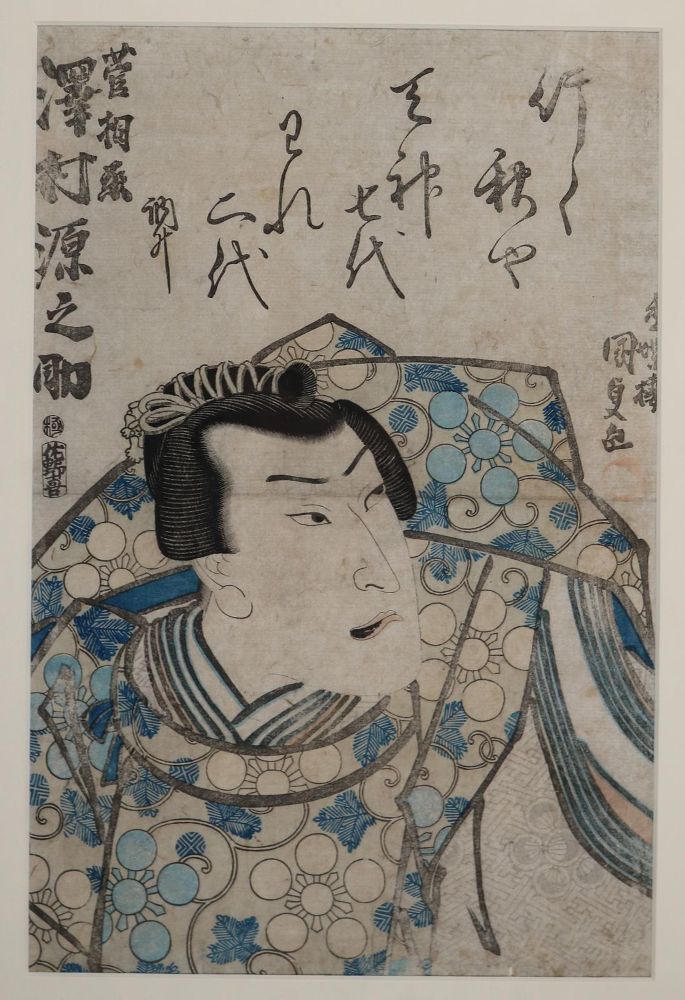 行く
秋や
天神
七代
われ
二代
訥升
菅相丞
澤村源之助
極
佐野喜
香蝶樓
國貞画